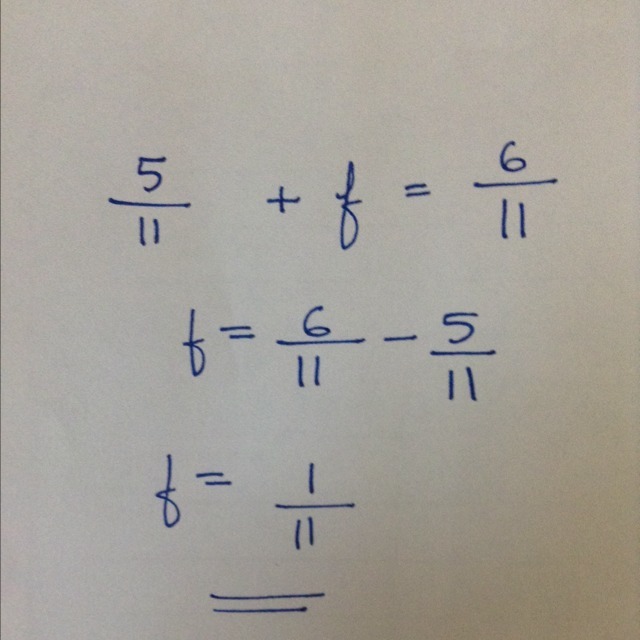 5/11 + f = 6/11
f = 6/11 - 5/11
f = 1/11